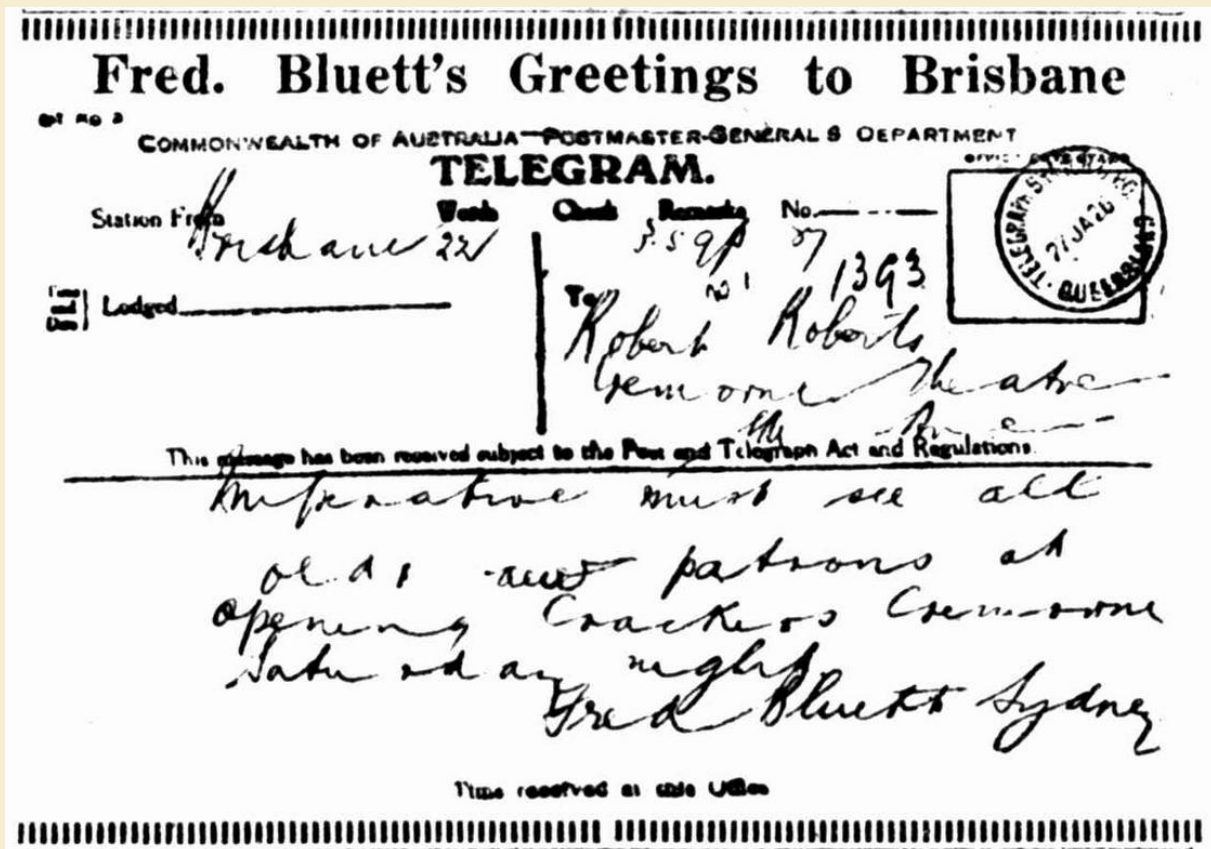 Fred. Bluett's Greetings to Brisbane
COMMONWEALTH OF AUSTRALIA—POSTMASTER-GENERAL'S DEPARTMENT
TELEGRAM.
Station From Words Check Remarks No.
Brisbane 22 3.59p 27
1393
Time and Date } Lodged
To
Robert Roberts
Cremorne Theatre
This message has been received subject to the Post and Telegraph Act and Regulations.
Imperative must see all
old & new patrons at
opening Crackers Cremorne
Saturday night
Fred Bluett Sydney
Time received at this Office
TELEGRAPH
27 JA 26
QUEENSLAND